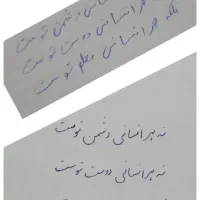 نه هر انسانی دشمن توست
هر انسانی دوست توست
بلکه هر انسانی معلم توست
نه هر انسانی دشمن توست
نه هر انسانی دوست توست